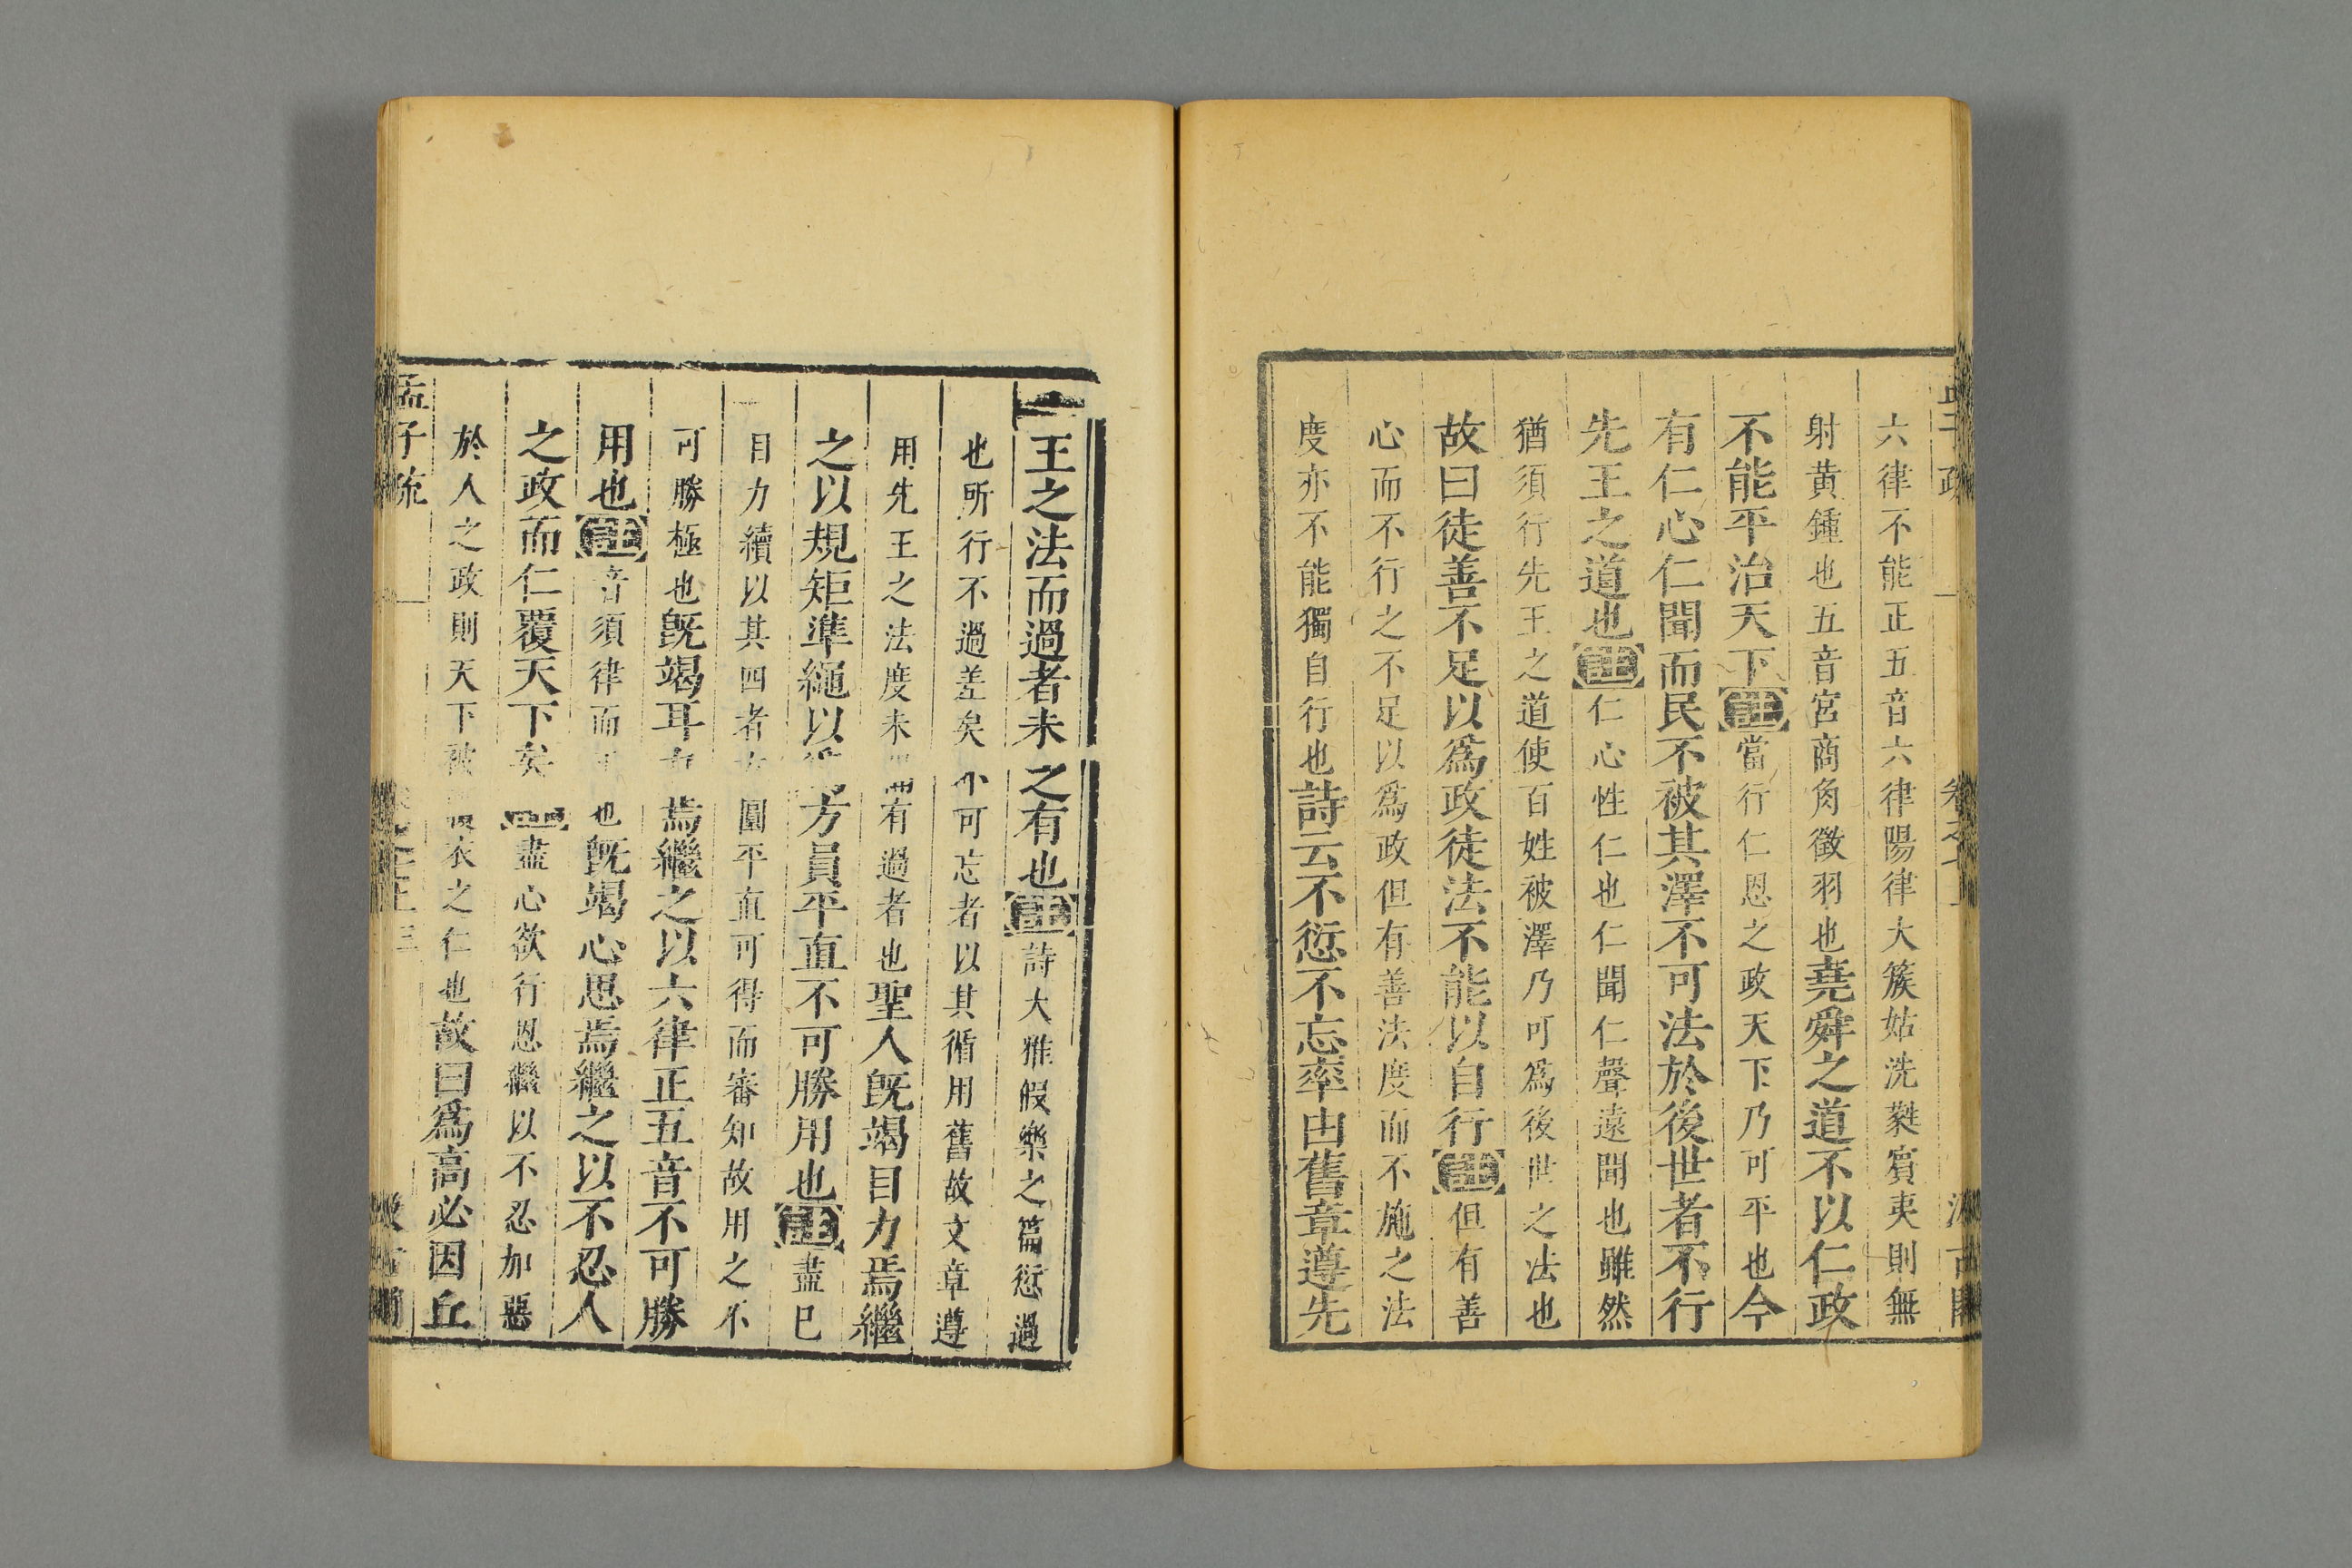 六律不能正五音六律陽律大簇姑洗蕤賓夷則無
射黄鍾也五音宮商角徵羽也堯舜之道不以仁政
不能平治天下註當行仁恩之政天下乃可平也今
有仁心仁聞而民不被其澤不可法於後世者不行
先王之道也註仁心性仁也仁聞仁聲遠聞也雖然
猶須行先王之道使百姓被澤乃可爲後世之法也
故曰徒善不足以爲政徒法不能以自行註但有善
心而不行之不足以爲政但有善法度而不施之法
度亦不能獨自行也詩云不愆不忘率由舊章遵先
王之法而過者未之有也註詩大雅假樂之篇愆過
也所行不過差矣不可忘者以其循用舊故文章遵
用先王之法度未聞有過者也聖人旣竭目力焉繼
之以規矩準繩以爲方員平直不可勝用也註盡已
目力續以其四者方圓平直可得而審知故用之不
可勝極也旣竭耳力焉繼之以六律正五音不可勝
用也註音須律而正也旣竭心思焉繼之以不忍人
之政而仁覆天下矣註盡心欲行恩繼以不忍加惡
於人之政則天下被衣之仁也故曰爲高必因丘
孟子疏 三